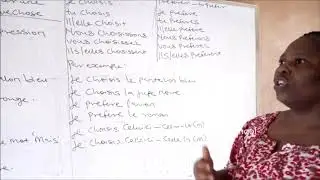 Je choisis
tu choisis
Il/elle choisit
Nous choisissons
Vous choisissez
Ils/elles choisissent
Par exemple:
Je choisis le pantalon bleu
Je choisis la jupe noire
Je préfère l'avion
Je préfère le roman
Je choisis Celui-ci - Celui-là (m)
Je choisis Celle-ci - Celle-là
Je préfère
tu préfères
Il/elle préfère
Nous préférons
Vous préférez
Ils/elles préfèrent
pression
bleu
mot 'Mais'